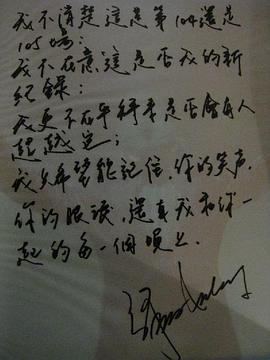 我不清楚這是第104還是
105場;
我不在意這是否我的新
紀錄;
我更不在乎將來是否會有人
超越它;
我只希望能記住,你的笑声,
你的眼淚,還有我和你一
起的每一個晚上.